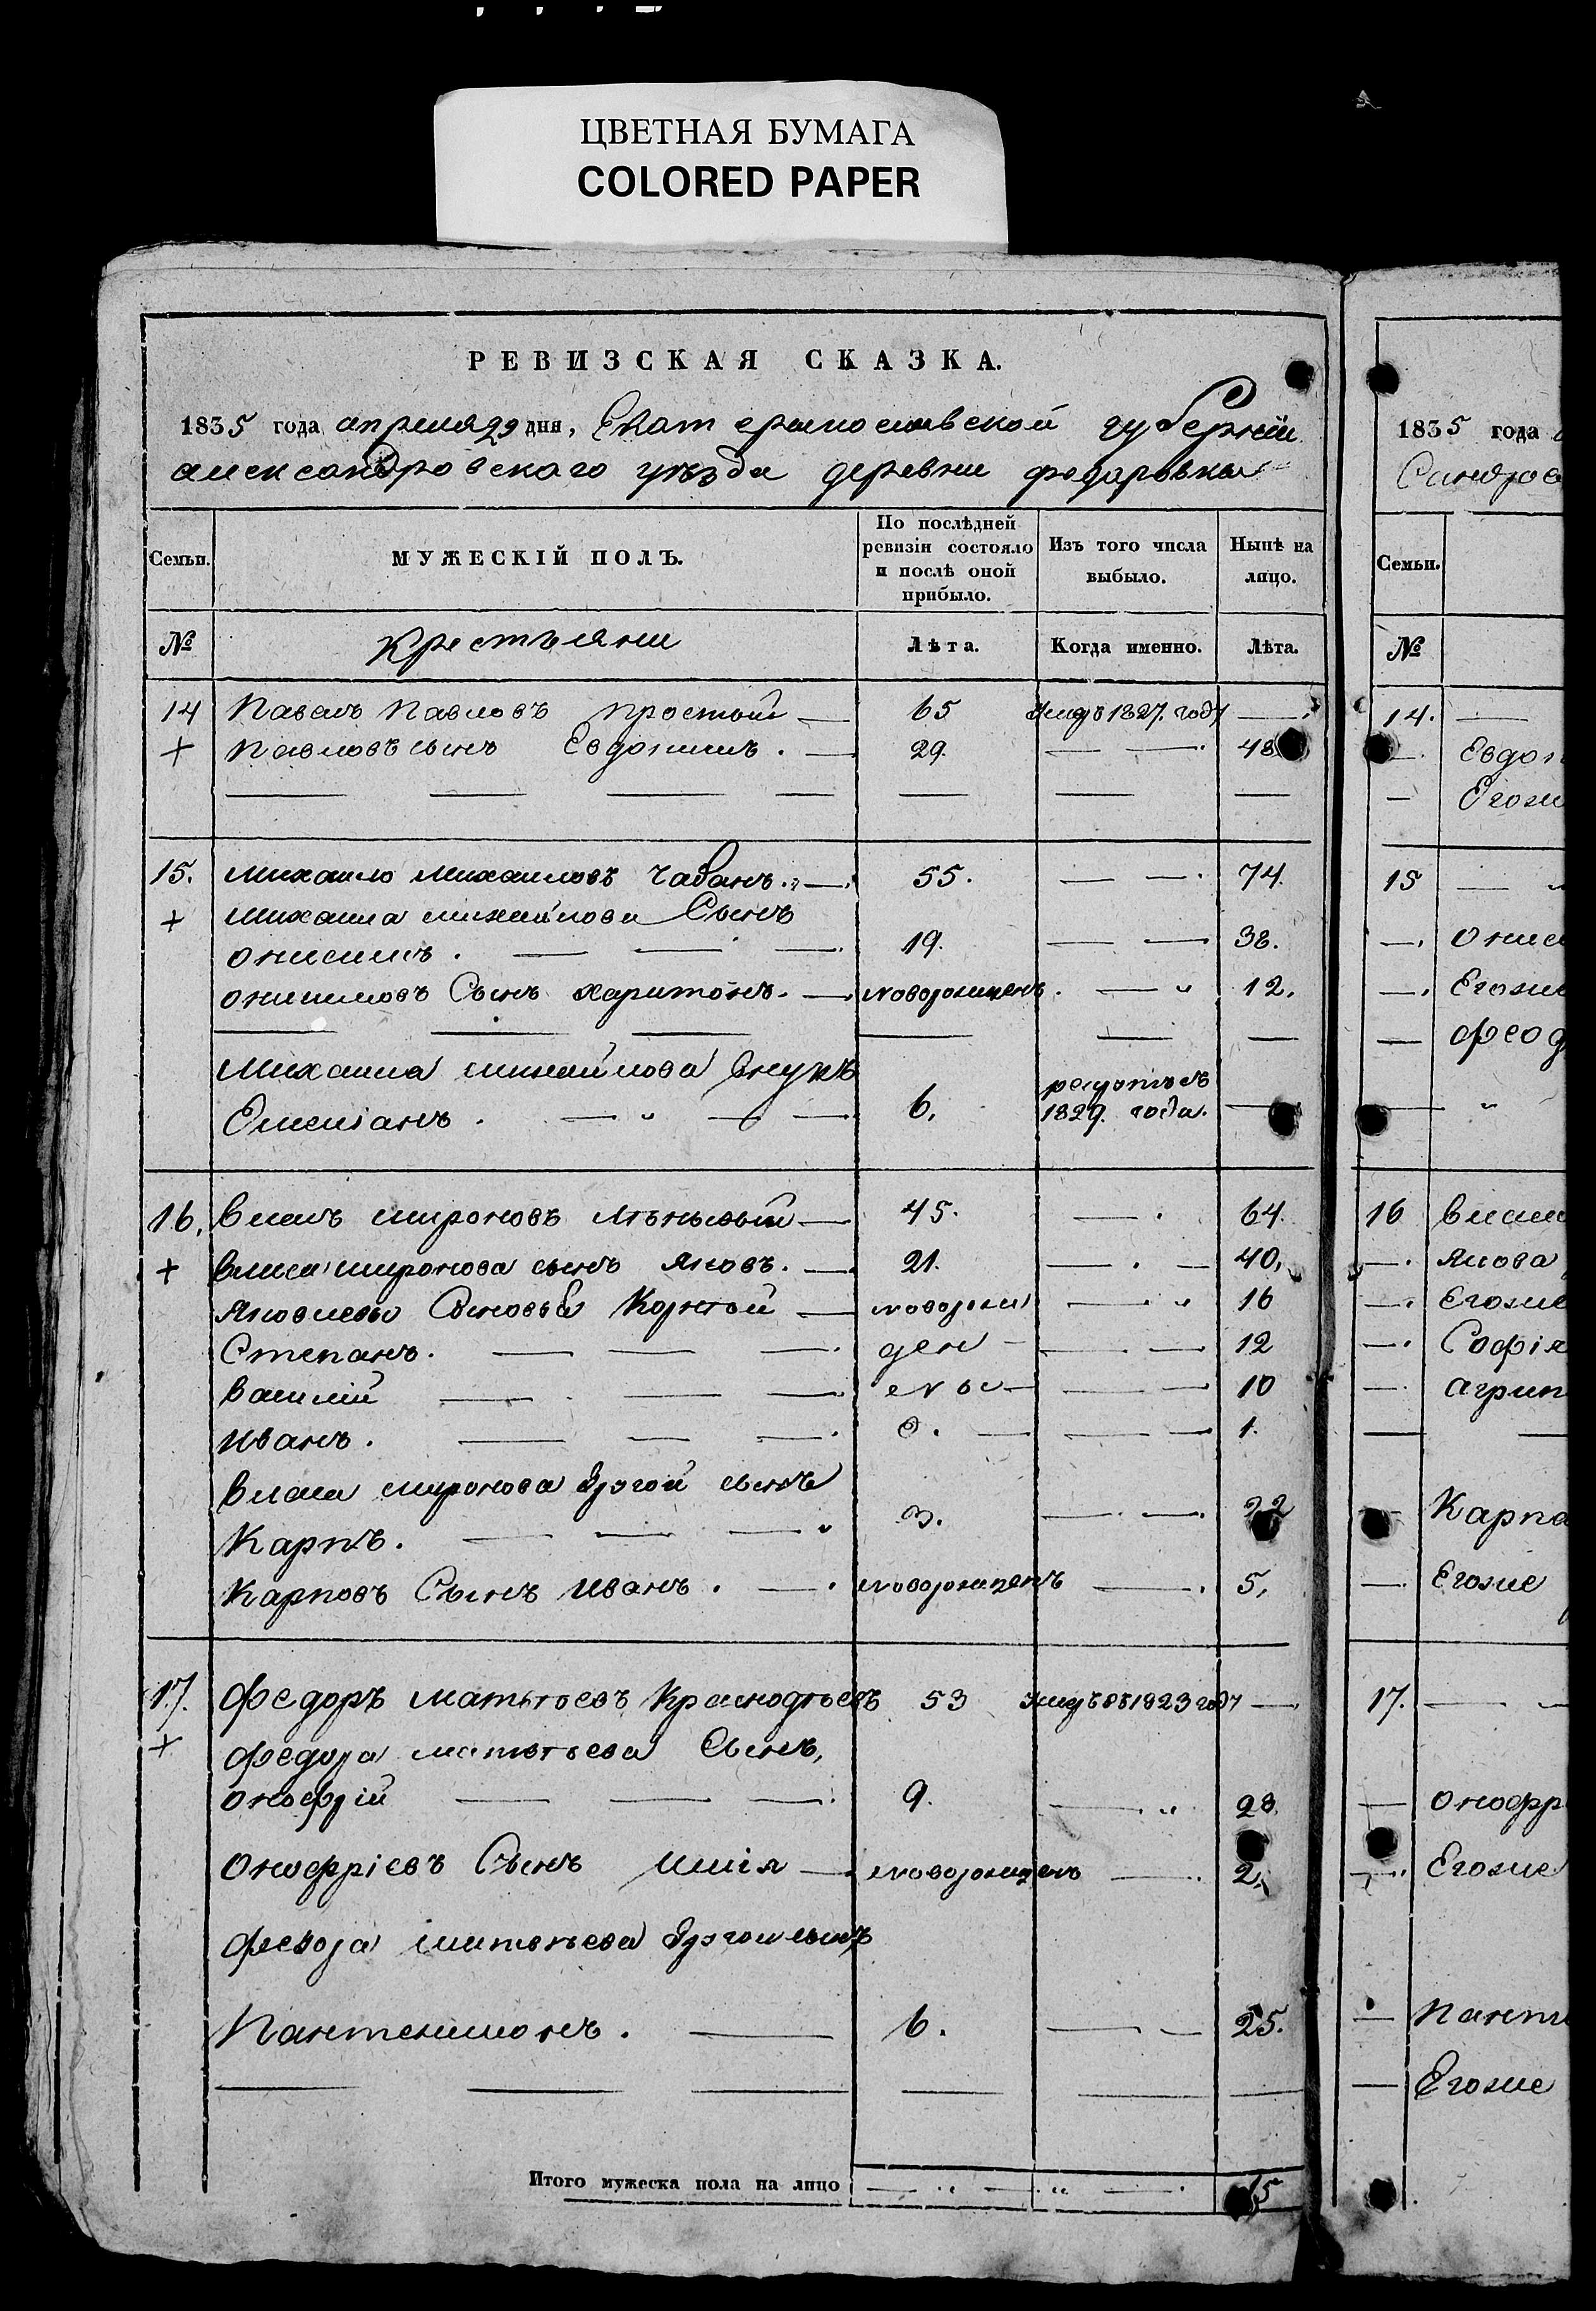 ЦВЕТНАЯ БУМАГА
COLORED PAPER
РЕВИЗСКАЯ СКАЗКА.
1835 года апреля 29 дня, Екатеринославской губернии
александровскаго уезда деревни федаровки
Семьи.
МУЖЕСКІЙ ПОЛЪ.
По послѣдней ревизіи состояло и послѣ оной прибыло.
Изъ того числа выбыло.
Нынѣ на лицо.
№ Крестьяни Лѣта. Когда именно. Лѣта.
14 Павелъ Павловъ простый — 65 Умръ 1827. году —
+ Павловъ сынъ Евдокимъ. — 29. — — 48
15. михаило михаиловъ Чабанъ. — 55. — — 74.
+ михаила михайлова Сынъ
онисимъ. — — — 19. — — 38.
онисимовъ Сынъ харитонъ. — новорожденъ. — " 12.
Михаила михайлова внукъ
Емеліанъ. — " — — 6. 1829. года. —
16. власъ мироновъ — 45. — 64.
+ власа миронова сынъ яковъ. — 21. — — 40.
яковлевы Сыновья Корнѣй — новорож — " 16
Степанъ. — — — ден — — 12
василій — — — ны — — — 10
иванъ. — — — е. — — — 1.
власа миронова другой сынъ
Карпъ. — — — " 3. — — 22
Карповъ Сынъ иванъ. — новорожденъ — 5.
17. федоръ матвѣевъ 53 Умръ въ 1823 году —
+ федора матвѣева Сынъ,
онофрій — — — 9. — " 28.
онофріевъ Сынъ илія — новорожденъ — 2.
федора матвѣева другой сынъ
Пантелимонъ. — 6. — — 25.
Итого мужеска пола на лицо — " — " — 15
1835 года
Сандров
Семьи.
№
14. —
— Евдок
— Егоже
15 —
— онис
— Егоже
— феод
— "
16 власа
— якова
— Егоже
— Софія
— агрип
— Карпа
— Егоже
17. —
— онофр
— Егоже
— Панте
— Егоже